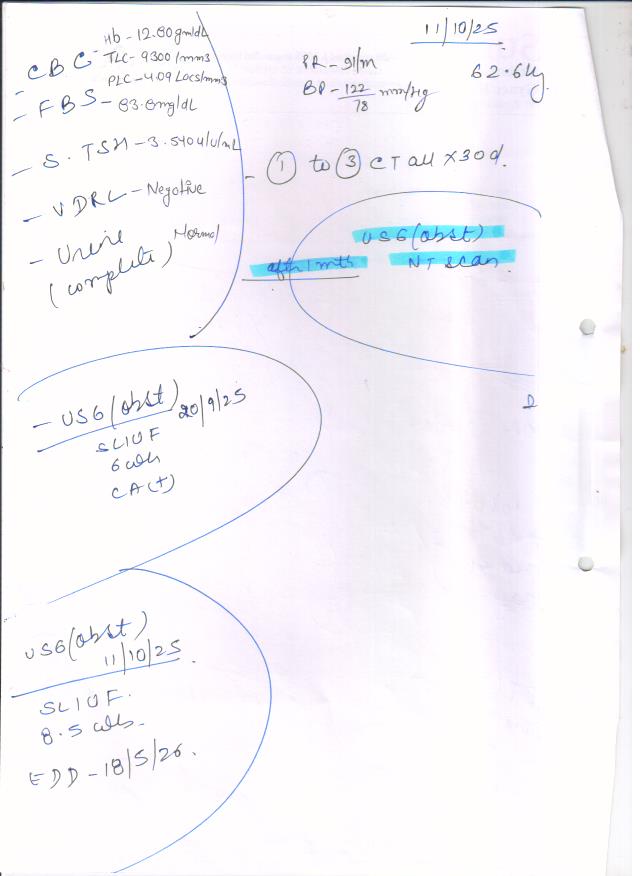 Hb - 12.80gm/dL
- CBC - TLC - 9300/mm3
PLC - 4.09 Lacs/mm3
- FBS - 83.8mg/dL
- S. TSH - 3.540uIU/mL
- VDRL - Negative
- Urine Normal
(complete)
11/10/25
PR - 91/m
62.6kg
BP - 122/78 mm/Hg
- ① to ③ CT all x30d.
USG (obst)
after 1 mth NT scan
- USG (obst) 20/9/25
SLIUF
6 wks
CA (+)
USG (obst)
11/10/25
SLIUF.
8.5 wks
EDD - 18/5/26.
D